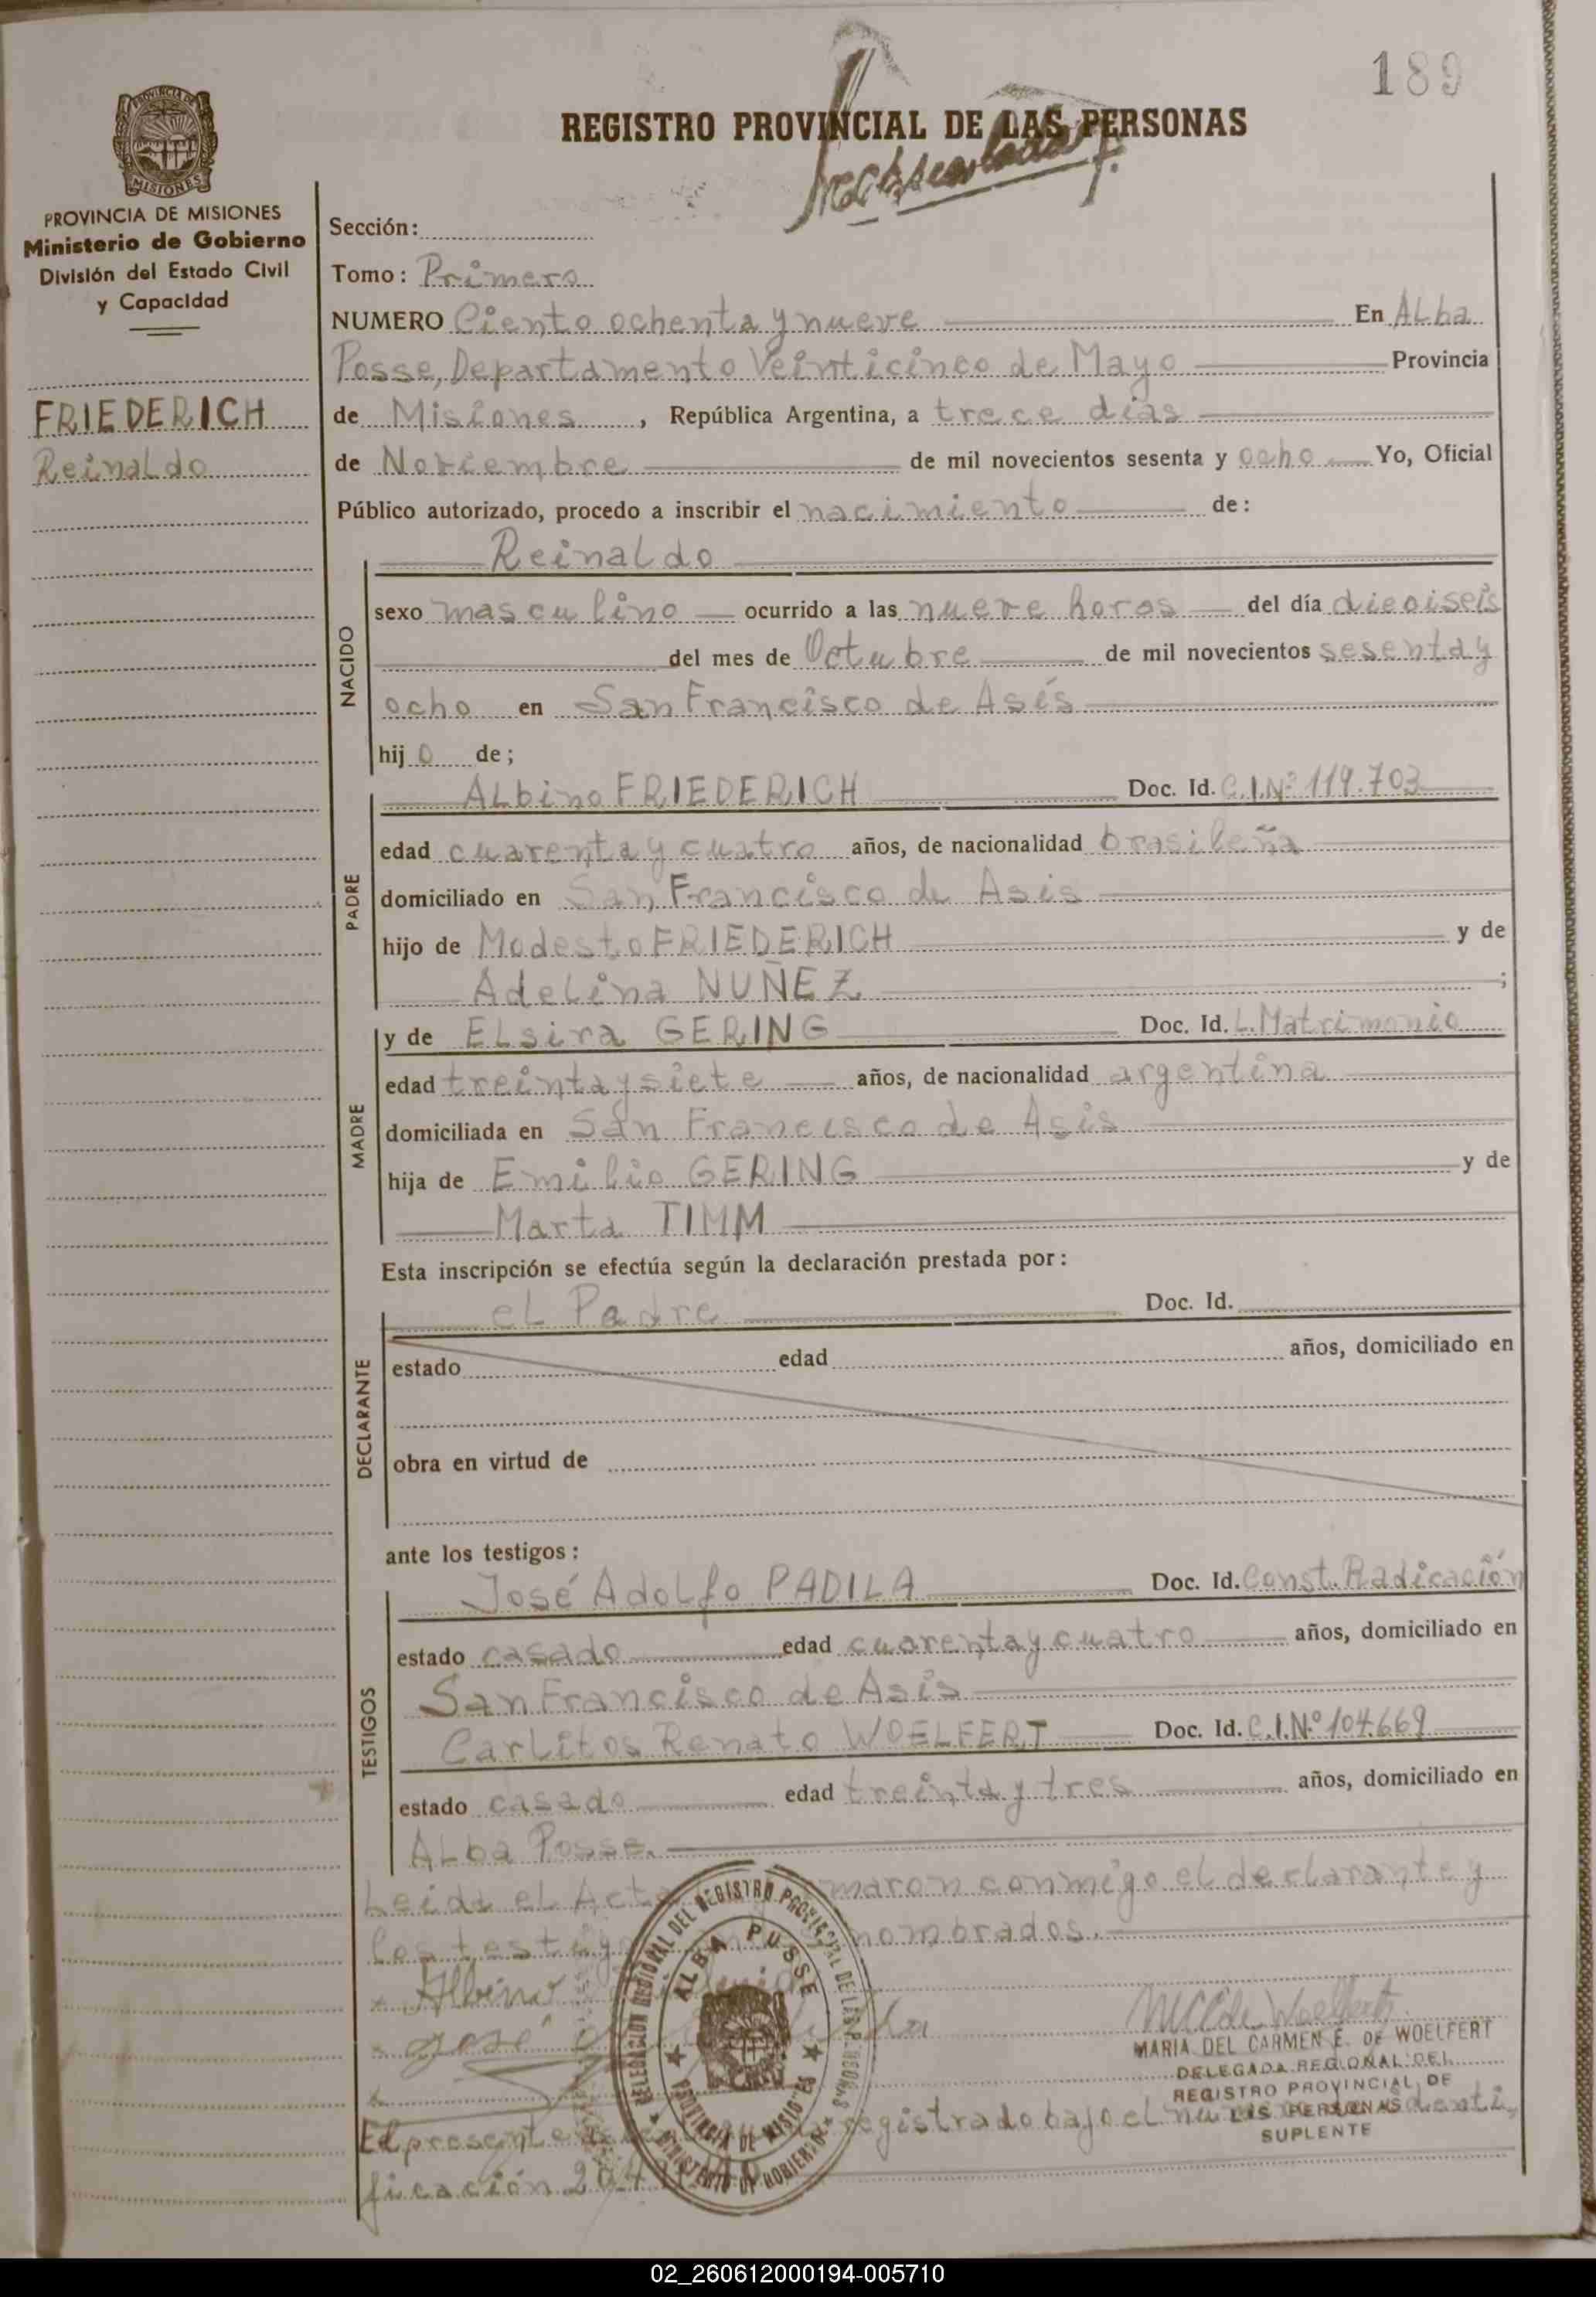 189
REGISTRO PROVINCIAL DE LAS PERSONAS
PROVINCIA DE MISIONES
Ministerio de Gobierno
División del Estado Civil
y Capacidad
FRIEDERICH
Reinaldo
Sección:
Tomo: Primero
NUMERO Ciento ochenta y nueve En Alba
Posse, Departamento Veinticinco de Mayo Provincia
de Misiones, República Argentina, a trece días
de Noviembre de mil novecientos sesenta y ocho Yo, Oficial
Público autorizado, procedo a inscribir el nacimiento de:
NACIDO
Reinaldo
sexo masculino ocurrido a las nueve horas del día dieciseis
del mes de Octubre de mil novecientos sesenta y
ocho en San Francisco de Asís
hijo de;
PADRE
Albino FRIEDERICH Doc. Id. C.I.Nº 119.703
edad cuarenta y cuatro años, de nacionalidad brasileña
domiciliado en San Francisco de Asis
hijo de Modesto FRIEDERICH y de
Adelina NUÑEZ ;
MADRE
y de Elsira GERING Doc. Id. L. Matrimonio
edad treinta y siete años, de nacionalidad argentina
domiciliada en San Francisco de Asis
hija de Emilio GERING y de
Marta TIMM
Esta inscripción se efectúa según la declaración prestada por:
DECLARANTE
el Padre Doc. Id.
estado edad años, domiciliado en
obra en virtud de
ante los testigos:
TESTIGOS
José Adolfo PADILA Doc. Id. Const. Radicación
estado casado edad cuarenta y cuatro años, domiciliado en
San Francisco de Asís
Carlitos Renato WOELFERT Doc. Id. C.I.Nº 104.669
estado casado edad treinta y tres años, domiciliado en
Alba Posse.
Leida el Acta maron conmigo el declarante y
los testigo nombrados.
Albino
José
DELEGACION REGIONAL DEL REGISTRO PROVINCIAL DE LAS PERSONAS
ALBA POSSE
PROVINCIA DE MISIONES
MINISTERIO DE GOBIERNO
MARIA DEL CARMEN E. DE WOELFERT
DELEGADA REGIONAL DEL
REGISTRO PROVINCIAL DE
LAS PERSONAS
SUPLENTE
El presente registrado bajo el identi
ficación
02_260612000194-005710